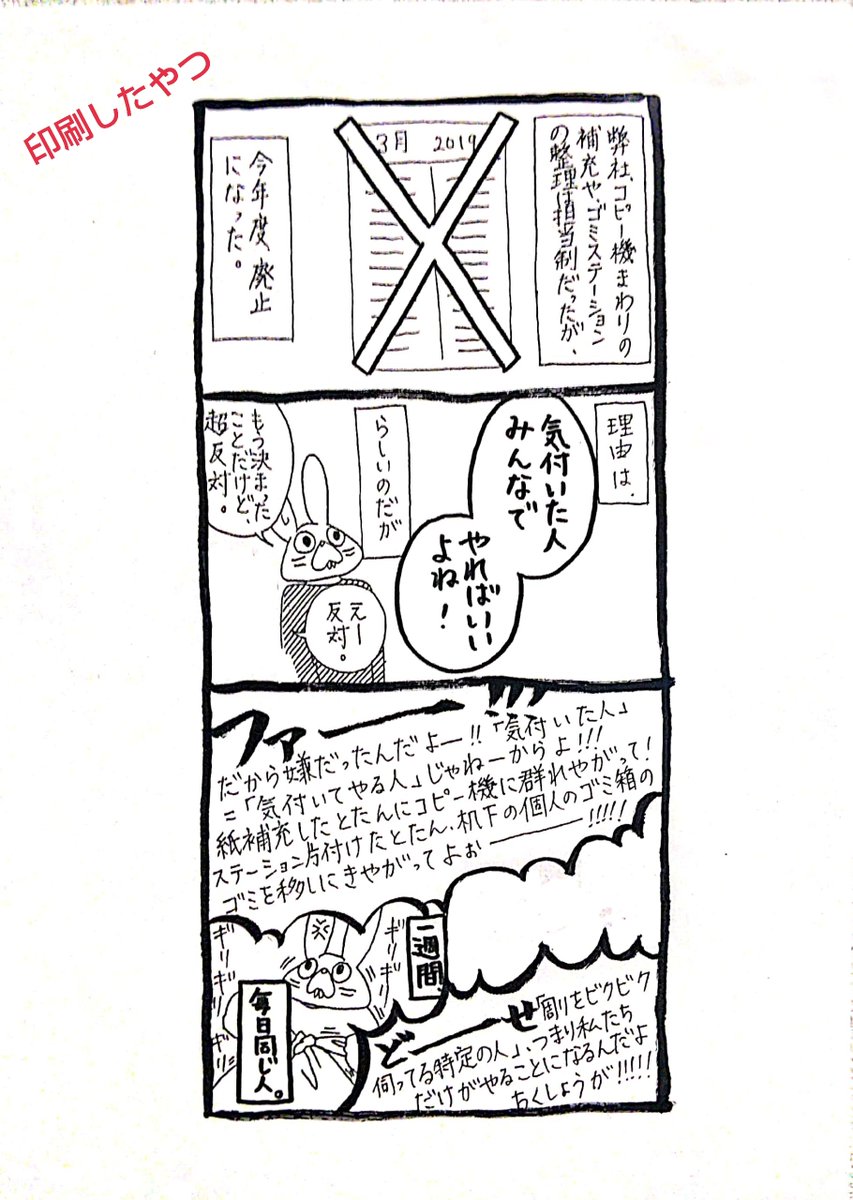 印刷したやつ
弊社、コピー機まわりの
補充や、ゴミステーション
の整理は担当制だったが、
3月 2019
今年度、廃止
になった。
理由は、
気付いた人
みんなで
やればいい
よね！
らしいのだが
もう決まった
ことだけど、
超反対。
えー
反対。
ファー
だから嫌だったんだよー!!「気付いた人」
=「気付いてやる人」じゃねーからよ!!!
紙補充したとたんにコピー機に群れやがって!
ステーション片付けたとたん、机下の個人のゴミ箱の
ゴミを移しにきやがってよぉー!!!!!
ギリギリ
ギリギリ
一週間、
毎日同じ人。
どーーせ「周りをビクビク
伺ってる特定の人」、つまり私たち
だけがやることになるんだよ
ちくしょうが!!!!!